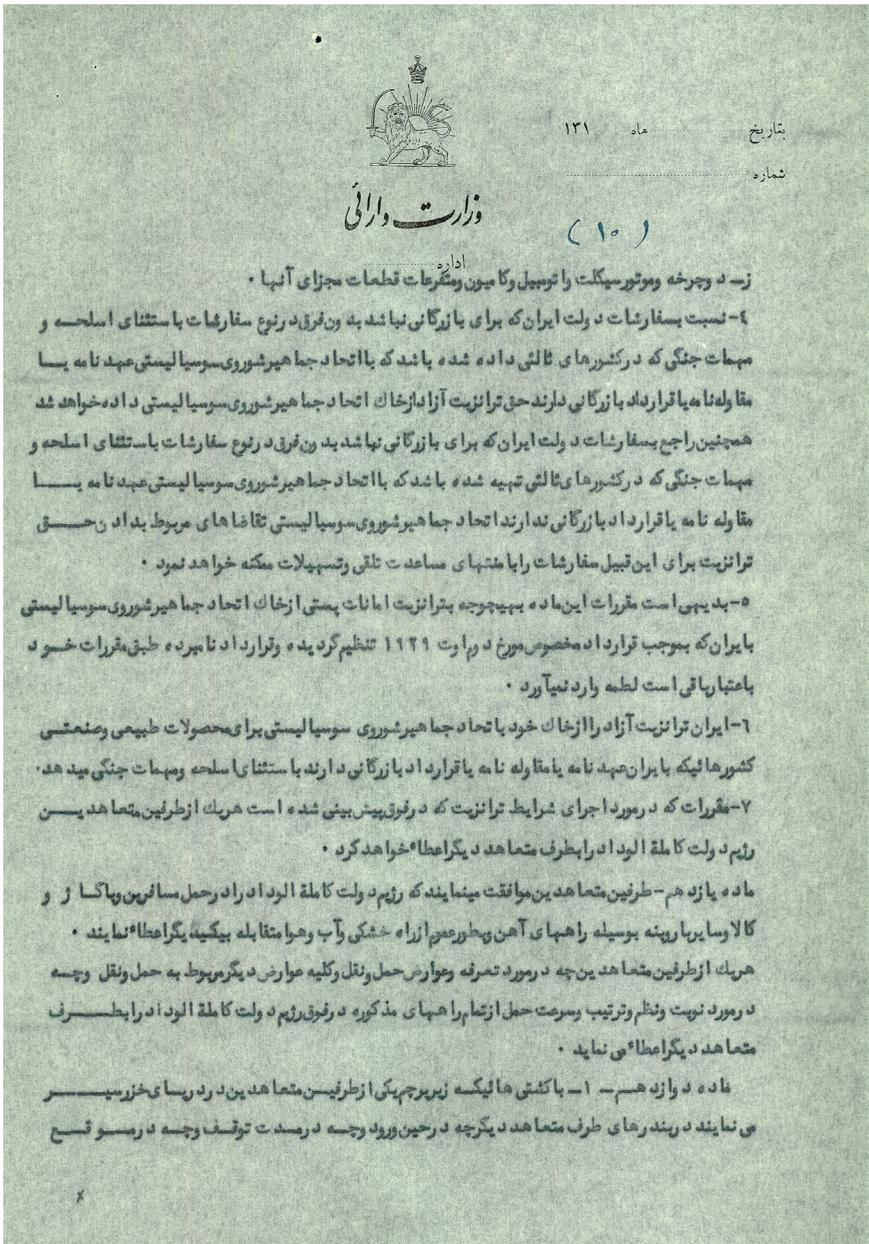 بتاریخ ماه ۱۳۱
شماره
وزارت دارائی
(۱۰)
اداره
ز- دوچرخه وموتورسیکلت را توبیل وکامیون ومتفرعات قطعات مجزای آنها .
٤- نسبت بسفارشات دولت ایران که برای بازرگانی نباشد بدون فرق درنوع سفارشات باستثنای اسلحه و
مهمات جنگی که درکشورهای ثالثی داده شده باشد که با اتحاد جماهیر شوروی سوسیالیستی عهد نامه یا
مقاوله نامه یا قرارداد بازرگانی دارند حق ترانزیت آزاد ازخاك اتحاد جماهیر شوروی سوسیالیستی داده خواهد شد
همچنین راجع بسفارشات دولت ایران که برای بازرگانی نباشد بدون فرق درنوع سفارشات باستثنای اسلحه و
مهمات جنگی که درکشورهای ثالثی تهیه شده باشد که با اتحاد جماهیر شوروی سوسیالیستی عهد نامه یا
مقاوله نامه یا قرارداد بازرگانی ندارند اتحاد جماهیر شوروی سوسیالیستی تقاضاهای مربوط بدادن حق
ترانزیت برای این قبیل سفارشات را بامنتهای مساعدت تلقی وتسهیلات ممکنه خواهد نمود .
٥- بدیهی است مقررات این ماده بهیچوجه بترانزیت امانات پستی ازخاك اتحاد جماهیر شوروی سوسیالیستی
بایران که بموجب قرارداد مخصوص مورخ دوم اوت ۱۹۲۹ تنظیم گردیده وقرارداد نامبرده طبق مقررات خود
باعتبار باقی است لطمه وارد نمیآورد .
٦- ایران ترانزیت آزاد را ازخاك خود باتحاد جماهیر شوروی سوسیالیستی برای محصولات طبیعی وصنعتی
کشورهائیکه بایران عهد نامه یا مقاوله نامه یا قرارداد بازرگانی دارند باستثنای اسلحه ومهمات جنگی میدهد.
٧- مقررات که درمورد اجرای شرایط ترانزیت که درفوق پیش بینی شده است هریك ازطرفین متعاهدین
رژیم دولت کاملة الوداد را بطرف متعاهد دیگر اعطاء خواهد کرد .
ماده یازدهم- طرفین متعاهدین موافقت مینمایند که رژیم دولت کاملة الوداد را درحمل مسافرین وباگاژ و
کالا وسایر باروبنه بوسیله راههای آهن وبطور عموم ازراه خشکی وآب وهوا متقابله بیکدیگر اعطاء نمایند .
هریك ازطرفین متعاهدین چه درمورد تعرفه وعوارض حمل ونقل وکلیه عوارض دیگر مربوط به حمل ونقل وچه
درمورد نوبت ونظم وترتیب وسرعت حمل ازتمام راههای مذکوره درفوق رژیم دولت کاملة الوداد را بطرف
متعاهد دیگر اعطاء می نماید .
ماده دوازدهم- ۱- باکشتی هائیکه زیر پرچم یکی ازطرفین متعاهدین در دریای خزر سیر
می نمایند دربندرهای طرف متعاهد دیگر چه درحین ورود وچه درمدت توقف وچه درموقع